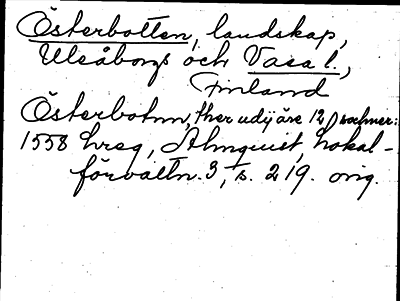 Österbotten, landskap,
Uleåborgs och Vasa l.,
Finland
Österbotnn, ther udij äre 12 sochner:
1558 hreg, Almquist, Lokal-
förvaltn. 3, s. 219. orig.